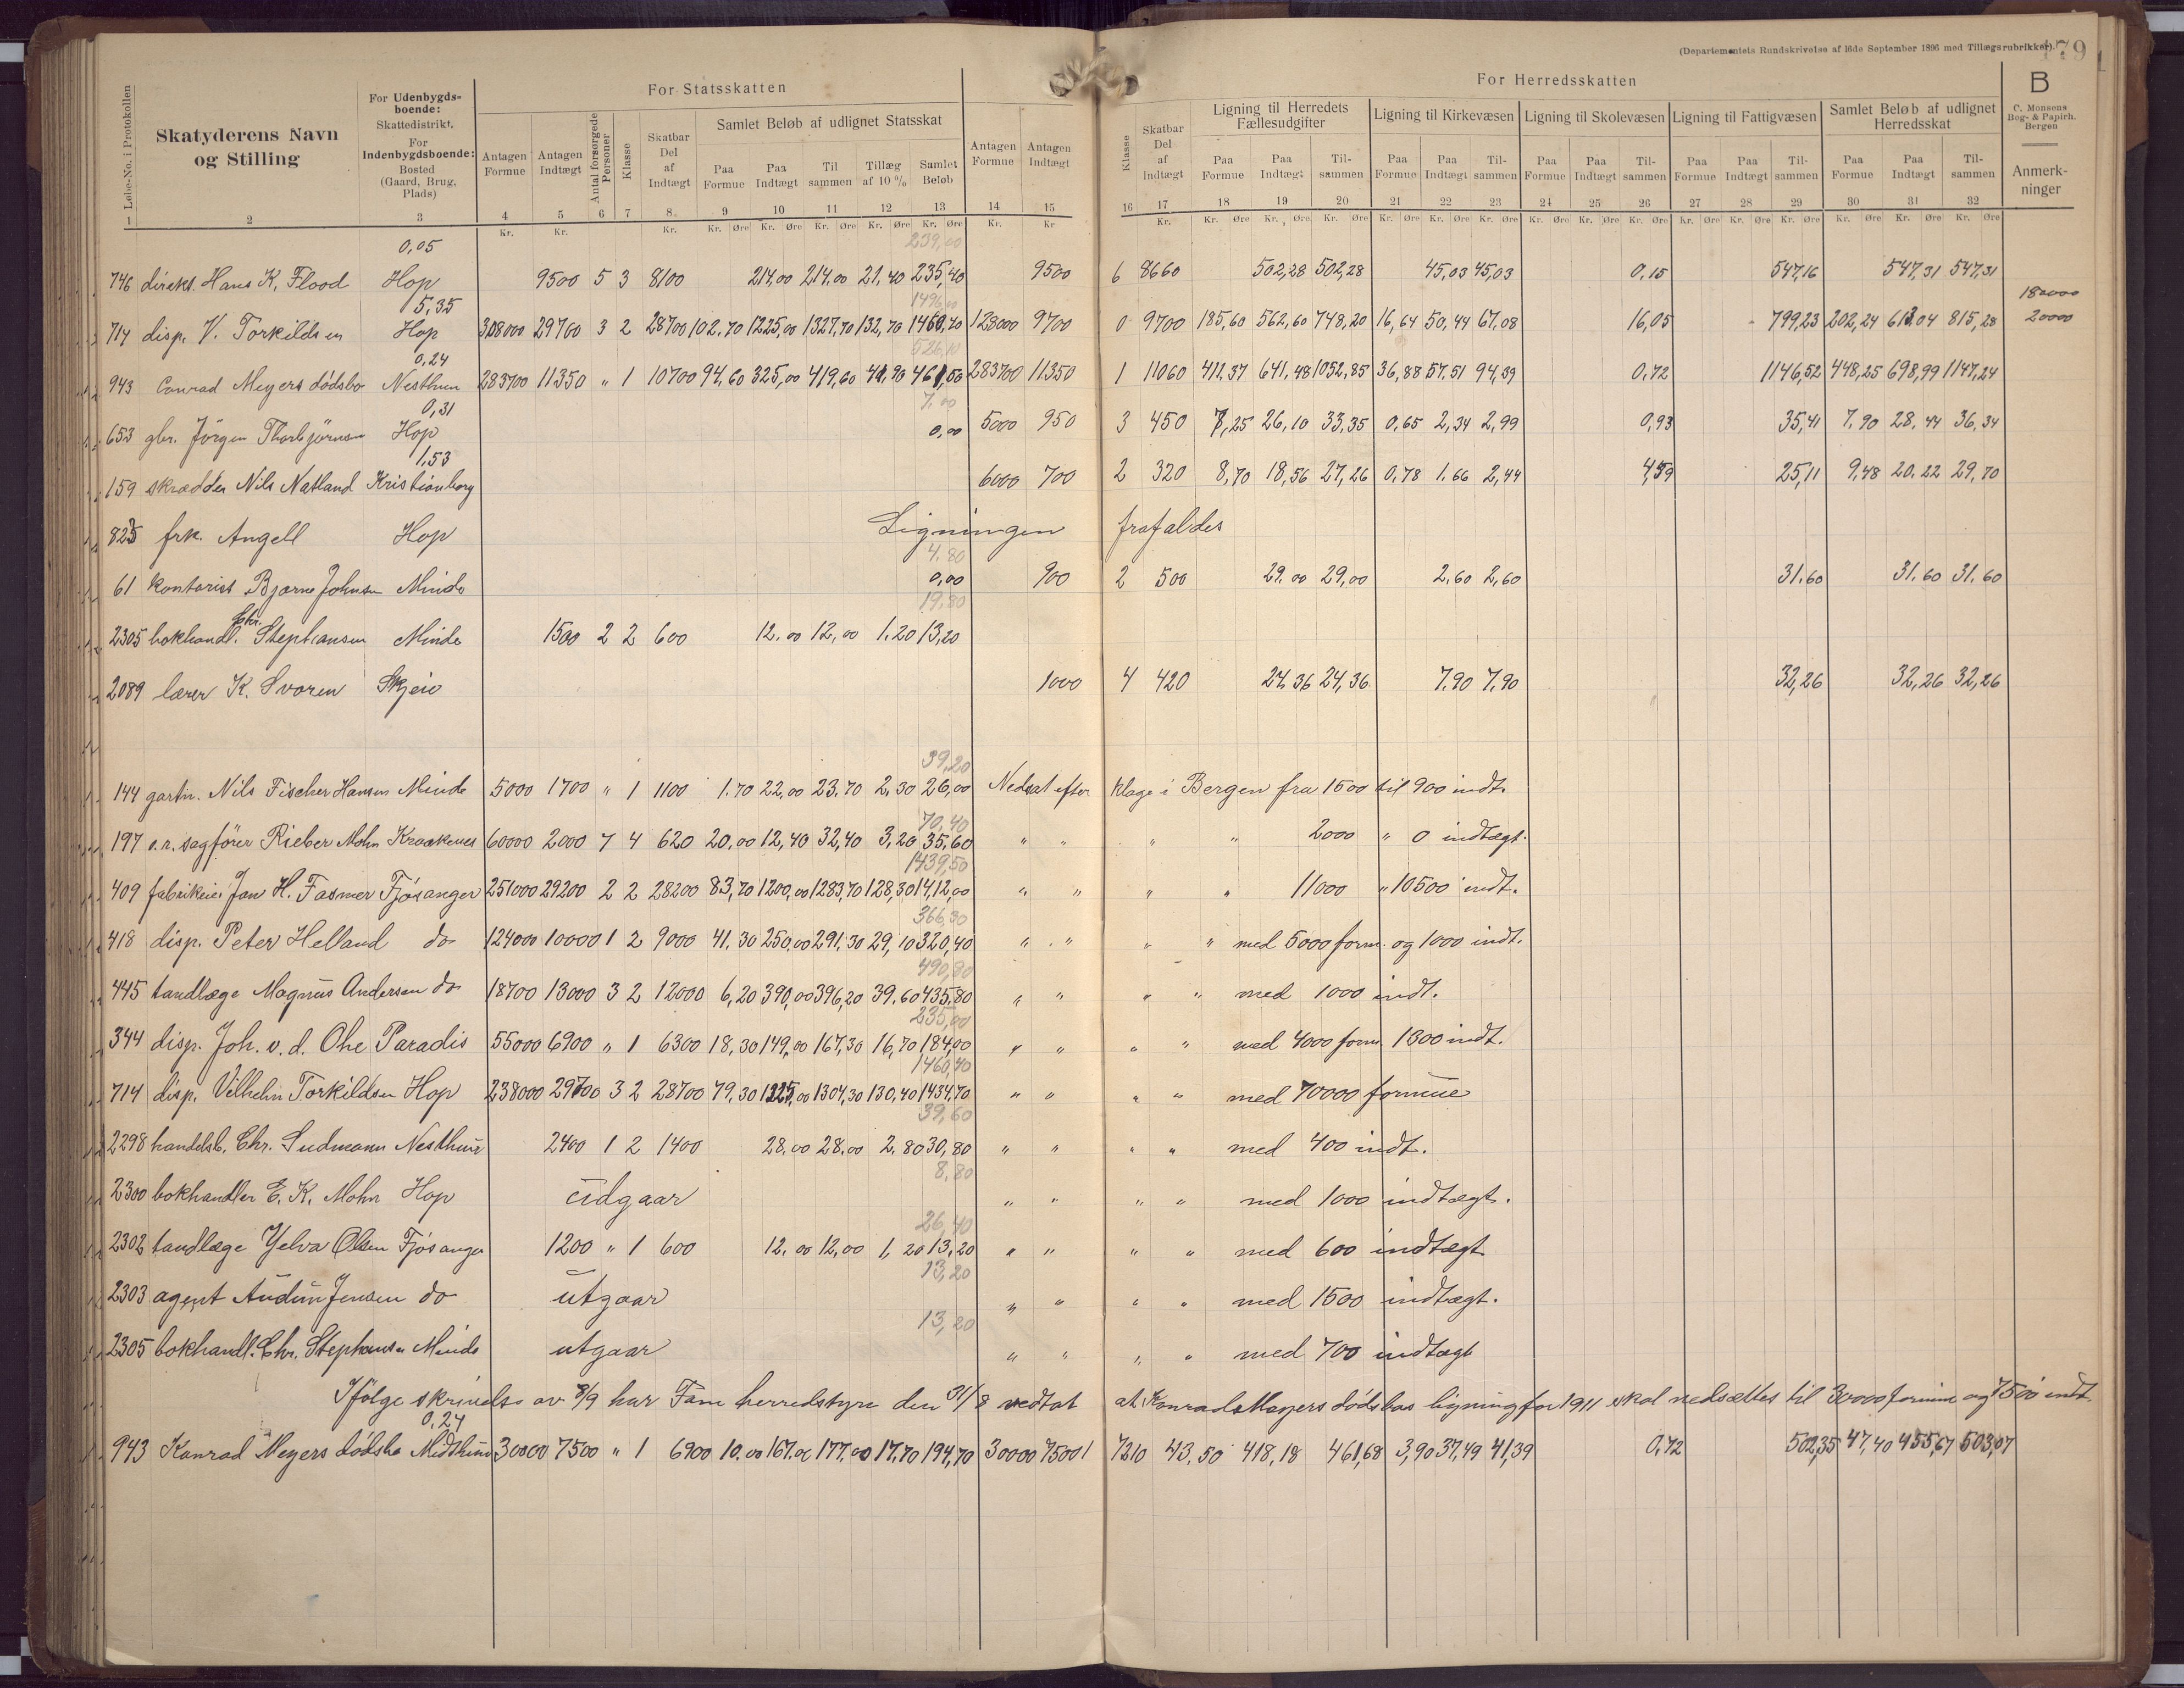 (Departementets Rundskrivelse af 16de September 1896 med Tillægsrubrikker). 179
For Statsskatten
For Herredsskatten
B
C. Monsens Bog- & Papirh. Bergen
Anmerkninger
Løbe-No. i Protokollen
Skatyderens Navn og Stilling
For Udenbygdsboende: Skattedistrikt. For Indenbygdsboende: Bosted (Gaard, Brug, Plads)
Antagen Formue
Antagen Indtægt
Antal forsørgede Personer
Klasse
Skatbar Del af Indtægt
Samlet Beløb af udlignet Statsskat
Paa Formue
Paa Indtægt
Til sammen
Tillæg af 10 %
Samlet Beløb
Antagen Formue
Antagen Indtægt
Klasse
Skatbar Del af Indtægt
Ligning til Herredets Fællesudgifter
Ligning til Kirkevæsen
Ligning til Skolevæsen
Ligning til Fattigvæsen
Samlet Beløb af udlignet Herredsskat
Paa Formue Paa Indtægt Tilsammen Paa Formue Paa Indtægt Tilsammen Paa Formue Paa Indtægt Tilsammen Paa Formue Paa Indtægt Tilsammen Paa Formue Paa Indtægt Tilsammen
1 2 3 4 5 6 7 8 9 10 11 12 13 14 15 16 17 18 19 20 21 22 23 24 25 26 27 28 29 30 31 32
0,05 239,00
746 direkt. Hans K. Flood Hop 9500 5 3 8100 214,00 214,00 21,40 235,40 9500 6 8660 502,28 502,28 45,03 45,03 0,15 547,16 547,31 547,31
5,35 1496,00 180000
714 disp. V. Torkildsen Hop 308000 29700 3 2 28700 102,70 1225,00 1327,70 132,70 1460,40 128000 9700 0 9700 185,60 562,60 748,20 16,64 50,44 67,08 16,05 799,23 202,24 613,04 815,28 20000
0,24 526,10
943 Conrad Meyers dødsbo Nesthun 283700 11350 " 1 10700 94,60 325,00 419,60 41,90 461,50 283700 11350 1 11060 411,37 641,48 1052,85 36,88 57,51 94,39 0,72 1146,52 448,25 698,99 1147,24
0,31 7,00
653 gbr. Jörgen Thorbjörnsen Hop 0,00 5000 950 3 450 7,25 26,10 33,35 0,65 2,34 2,99 0,93 35,41 7,90 28,44 36,34
1,53
159 skrædder Nils Natland Kristianborg 6000 700 2 320 8,70 18,56 27,26 0,78 1,66 2,44 4,59 25,11 9,48 20,22 29,70
825 frk. Angell Hop Ligningen frafaldes
4,80
61 kontorist Bjarne Johnsen Minde 0,00 900 2 500 29,00 29,00 2,60 2,60 31,60 31,60 31,60
19,80
2305 bokhandl. Chr. Stephansen Minde 1500 2 2 600 12,00 12,00 1,20 13,20
2089 lærer K. Svoren Skjeio 1000 4 420 24,36 24,36 7,90 7,90 32,26 32,26 32,26
39,20
144 gartn. Nils Fischer Hansen Minde 5000 1700 " 1 1100 1,70 22,00 23,70 2,30 26,00 Nedsat efter klage i Bergen fra 1500 til 900 indt.
70,40
197 o.r. sagförer Rieber Mohn Kraakenes 60000 2000 7 4 620 20,00 12,40 32,40 3,20 35,60 " " " " 2000 " 0 indtægt.
1439,50
409 fabrikeier Jan H. Fasmer Fjösanger 251000 29200 2 2 28200 83,70 1200,00 1283,70 128,30 1412,00 " " " " 11000 " 10500 indt.
366,30
418 disp. Peter Helland do 124000 10000 1 2 9000 41,30 250,00 291,30 29,10 320,40 " " " " med 5000 form. og 1000 indt.
490,80
445 tandlæge Magnus Andersen do 18700 13000 3 2 12000 6,20 390,00 396,20 39,60 435,80 " " " " med 1000 indt.
235,00
344 disp. Joh. v. d. Ohe Paradis 55000 6900 " 1 6300 18,30 149,00 167,30 16,70 184,00 " " " " med 4000 form 1300 indt.
1460,40
714 disp. Vilhelm Torkildsen Hop 238000 29700 3 2 28700 79,30 1225,00 1304,30 130,40 1434,70 " " " " med 70000 formue
39,60
2298 handelsb. Chr. Sudmann Nesthun 2400 1 2 1400 28,00 28,00 2,80 30,80 " " " " med 400 indt.
8,80
2300 bokhandler E. K. Mohn Hop udgaar " " " " med 1000 indtægt.
26,40
2302 tandlæge Yelva Olsen Fjösanger 1200 " 1 600 12,00 12,00 1,20 13,20 " " " " med 600 indtægt
13,20
2303 agent Audun Jensen do utgaar " " " " med 1500 indtægt.
13,20
2305 bokhandl. Chr. Stephansen Minde utgaar " " " " med 700 indtægt
Ifölge skrivelse av 8/9 har Fane herredstyre den 31/8 vedtat at Konrad Meyers dödsbos ligning for 1911 skal nedsættes til 30000 formue og 7500 indt.
0,24
943 Konrad Meyers dödsbo Midthun 30000 7500 " 1 6900 10,00 167,00 177,00 17,70 194,70 30000 7500 1 7210 43,50 418,18 461,68 3,90 37,49 41,39 0,72 502,35 47,40 455,67 503,07